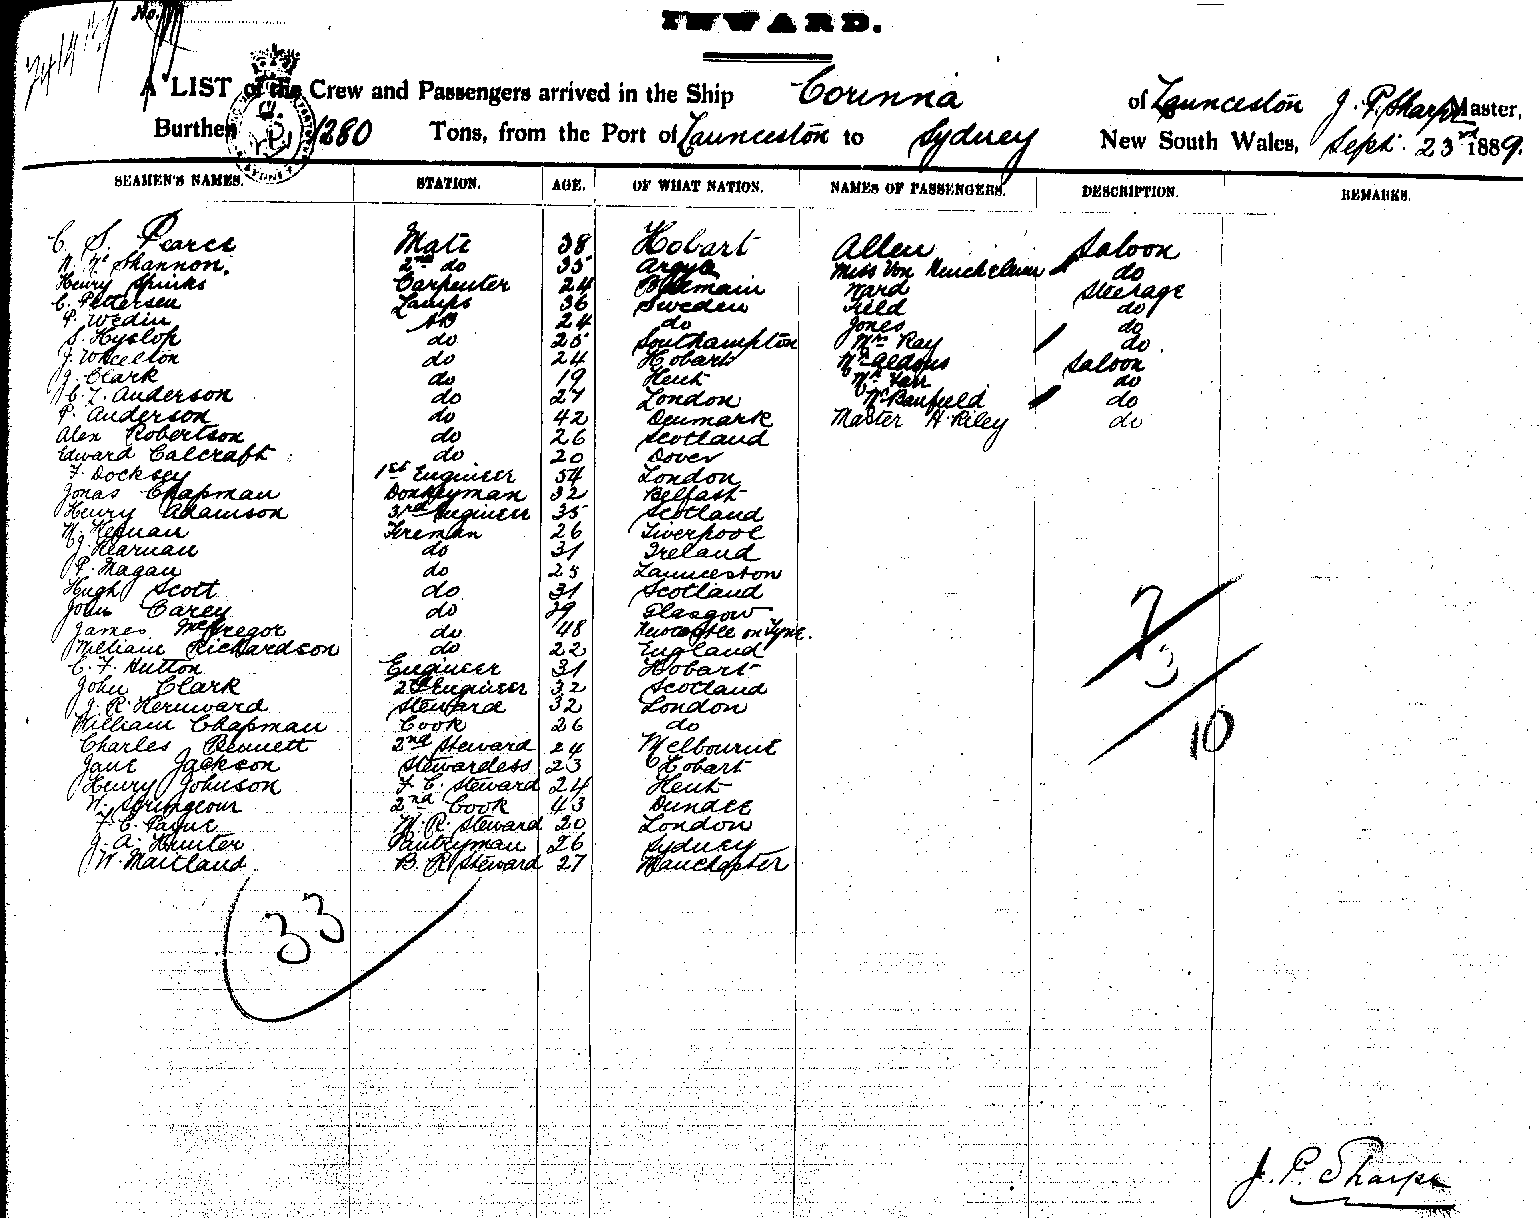 INWARD.
No.
A LIST of the Crew and Passengers arrived in the Ship Corinna of Launceston J. P. Sharpe Master,
Burthen 1280 Tons, from the Port of Launceston to Sydney New South Wales, Sept. 23rd 1889.
SEAMEN'S NAMES. STATION. AGE. OF WHAT NATION. NAMES OF PASSENGERS. DESCRIPTION. REMARKS.
C. S. Pearce Mate 38 Hobart Allen Saloon
N. Mc Shannon. 2nd do 35 Argyle Miss Von do
Henry Spinks Carpenter 24 Ward Steerage
C. Pettersen Lamps 36 Sweden Field do
P. Wedin AB 24 do Jones do
S. Hyslop do 25 Southampton Mrs Ray do
J. Wheelton do 24 Hobart Saloon
J. Clark do 19 Kent Mr Farr do
C. J. Anderson do 27 London Mr Banfield do
P. Anderson do 42 Denmark Master H. Riley do
Alex Robertson do 26 Scotland
Edward Calcraft do 20 Dover
F. Docksey 1st Engineer 54 London
Jonas Chapman Donkeyman 32 Belfast
Henry Adamson 3rd Engineer 35 Scotland
Fireman 26 Liverpool
J. Kearnan do 31 Ireland
P. Magan do 25 Launceston
Hugh Scott do 31 Scotland
John Carey do 29 Glasgow
James McGregor do 48 Newcastle on Tyne.
William Richardson do 22 England
C. F. Hutton Engineer 31 Hobart
John Clark 2nd Engineer 32 Scotland
J. R. Hernward Steward 32 London
William Chapman Cook 26 do
Charles Bennett 2nd Steward 24 Melbourne
Jane Jackson Stewardess 23 Hobart
Henry Johnson F. C. Steward 24 Kent
W. Scrimgeour 2nd Cook 43 Dundee
F. C. Payne M. R. Steward 20 London
J. A. Hunter Pantryman 26 Sydney
W. Maitland B. R. Steward 27 Manchester
7
3
10
33
J. P. Sharpe